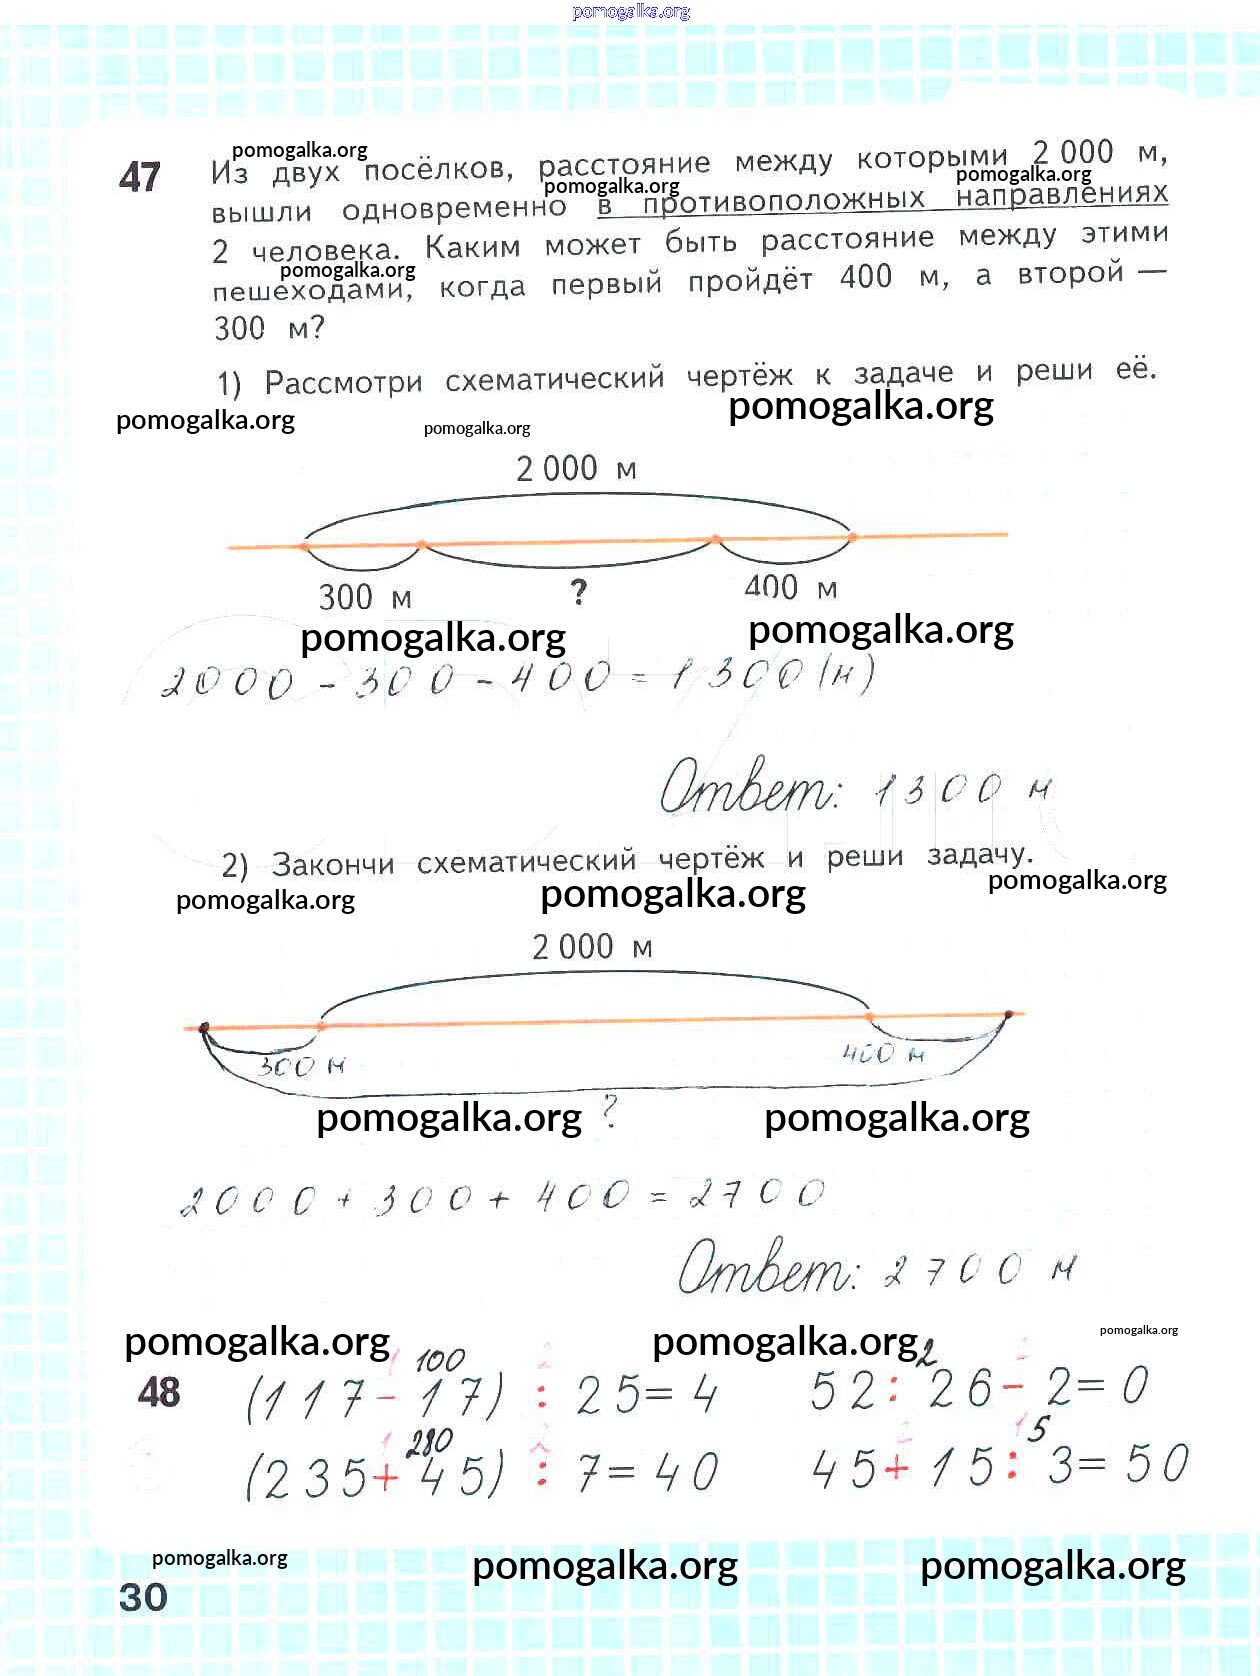 pomogalka.org
pomogalka.org
47 Из двух посёлков, расстояние между которыми 2 000 м,
pomogalka.org pomogalka.org
вышли одновременно в противоположных направлениях
2 человека. Каким может быть расстояние между этими
pomogalka.org
пешеходами, когда первый пройдёт 400 м, а второй —
300 м?
1) Рассмотри схематический чертёж к задаче и реши её.
pomogalka.org pomogalka.org pomogalka.org
2 000 м
300 м ? 400 м
pomogalka.org pomogalka.org
2000 - 300 - 400 = 1300 (м)
Ответ: 1300 м
2) Закончи схематический чертёж и реши задачу.
pomogalka.org pomogalka.org pomogalka.org
2 000 м
300 м 400 м
pomogalka.org ? pomogalka.org
2000 + 300 + 400 = 2700
Ответ: 2700 м
pomogalka.org pomogalka.org pomogalka.org
1 100 2 2 1
48 (117 - 17) : 25 = 4 52 : 26 - 2 = 0
1 280 2 2 1 5
(235 + 45) : 7 = 40 45 + 15 : 3 = 50
pomogalka.org pomogalka.org pomogalka.org
30